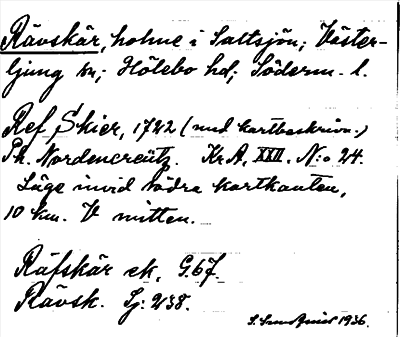 Rävskär, holme i Saltsjön; Väster-
ljung sn; Hölebo hd; Söderm. l.
Ref Skier, 1722 (med kartbeskrivn.)
Ph. Nordencreütz. Kr A, XXII. N:o 24.
Läge invid södra kartkanten,
10 km. V mitten.
Räfskär ek. G.67.
Rävsk. Sj: 238.
1936.